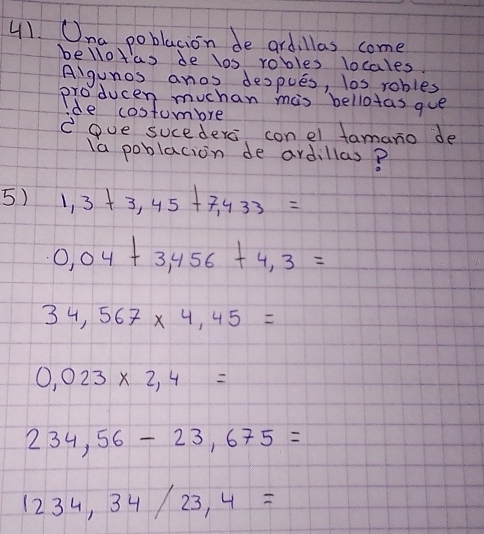 41. Una población de ardillas come
bellotas de los robles locales.
Algunos anos después, los robles
producen muchan más bellotas que
de costumbre
¿ Que sucederá con el tamaño de
la población de ardillas?
5) 1,3 + 3,45 + 7,433 =
0,04 + 3,456 + 4,3 =
34,567 x 4,45 =
0,023 x 2,4 =
234,56 - 23,675 =
1234,34 / 23,4 =